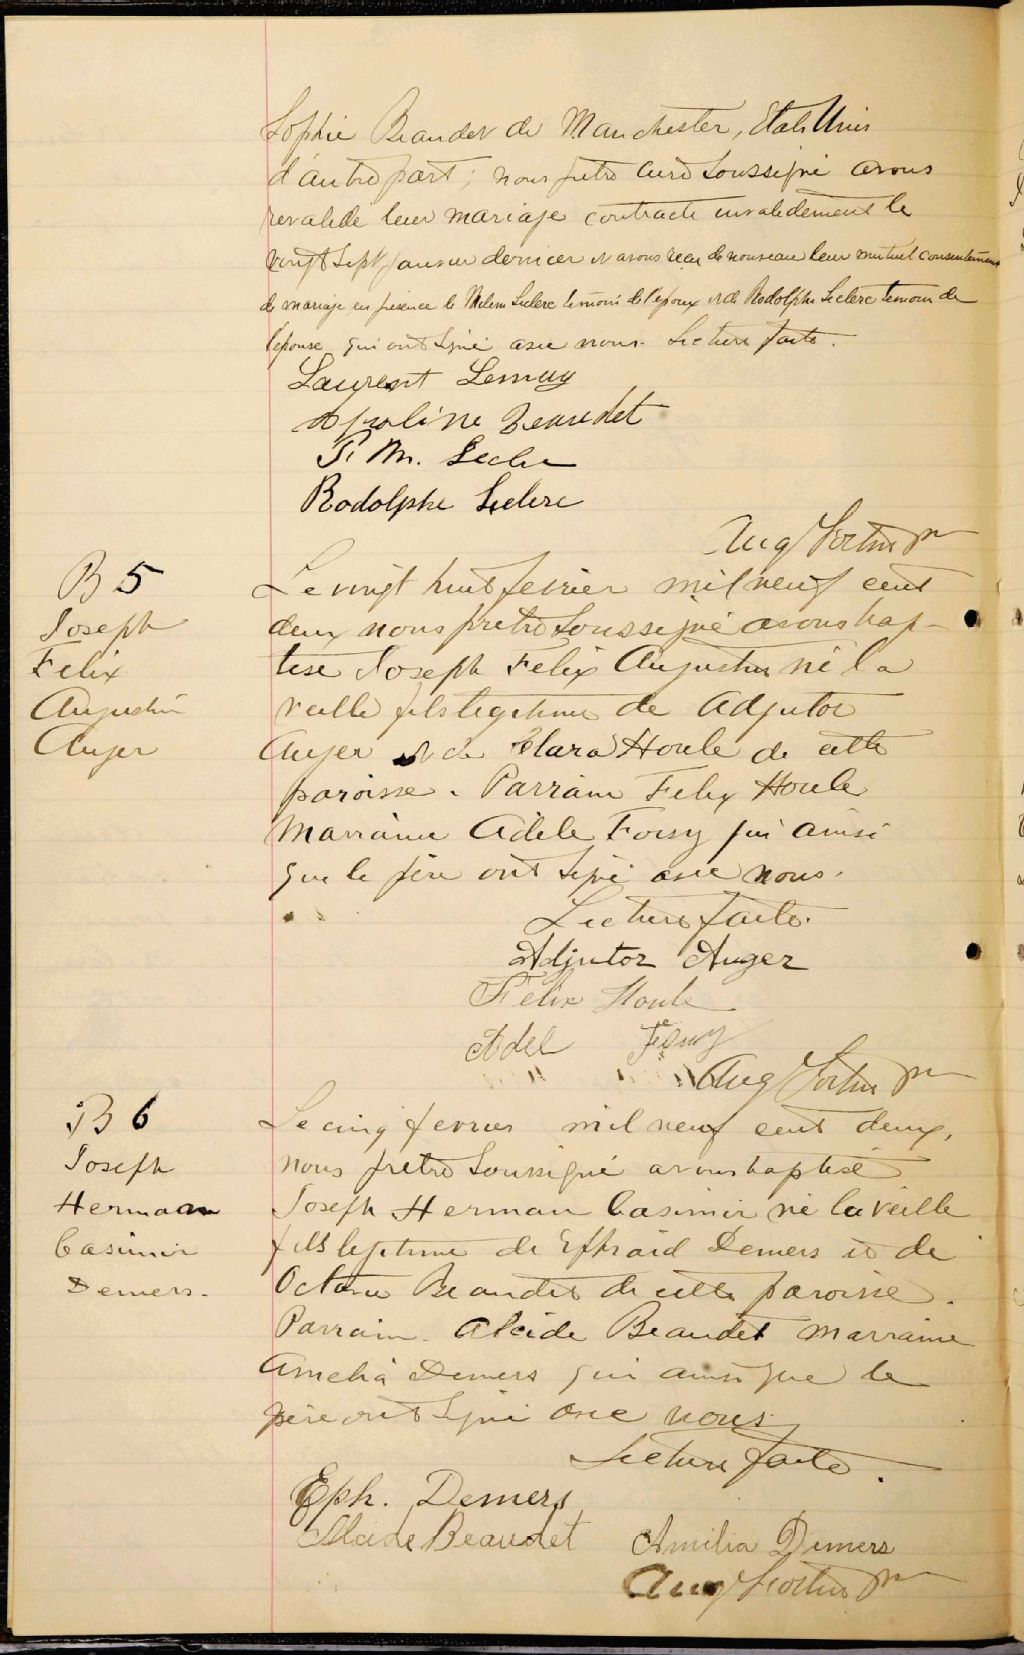 Sophie Beaudet de Manchester, Etats Unis
d'autre part; nous prêtre curé soussigné avons
revalidé leur mariage contracté invalidement le
vingt sept janvier dernier et avons reçu de nouveau leur mutuel consentement
de mariage en présence de Leclerc témoin de l'époux et de Rodolphe Leclerc témoin de
l'épouse qui ont signé avec nous. Lecture faite.
Laurent Lemay
Beaudet
P. M. Leclerc
Rodolphe Leclerc
Aug Fortier ptre
B 5
Joseph
Felix
Augustin
Auger
Le vingt huit fevrier mil neuf cent
deux nous prêtre soussigné avons bap-
tisé Joseph Felix Augustin né la
veille fils légitime de Adjutor
Auger et de Clara Houle de cette
paroisse. Parrain Felix Houle
Marraine Adèle Foisy qui ainsi
que le père ont signé avec nous.
Lecture faite.
Adjutor Auger
Felix Houle
Adel
Aug Fortier ptre
B 6
Joseph
Herman
Casimir
Demers.
Le cinq fevrier mil neuf cent deux,
nous prêtre soussigné avons baptisé
Joseph Herman Casimir né la veille
fils légitime de Demers et de
Beaudet de cette paroisse.
Parrain Alcide Beaudet marraine
Amelia Demers qui ainsi que le
père ont signé avec nous.
Lecture faite.
Eph. Demers
Alcide Beaudet Amilia Demers
Aug Fortier ptre